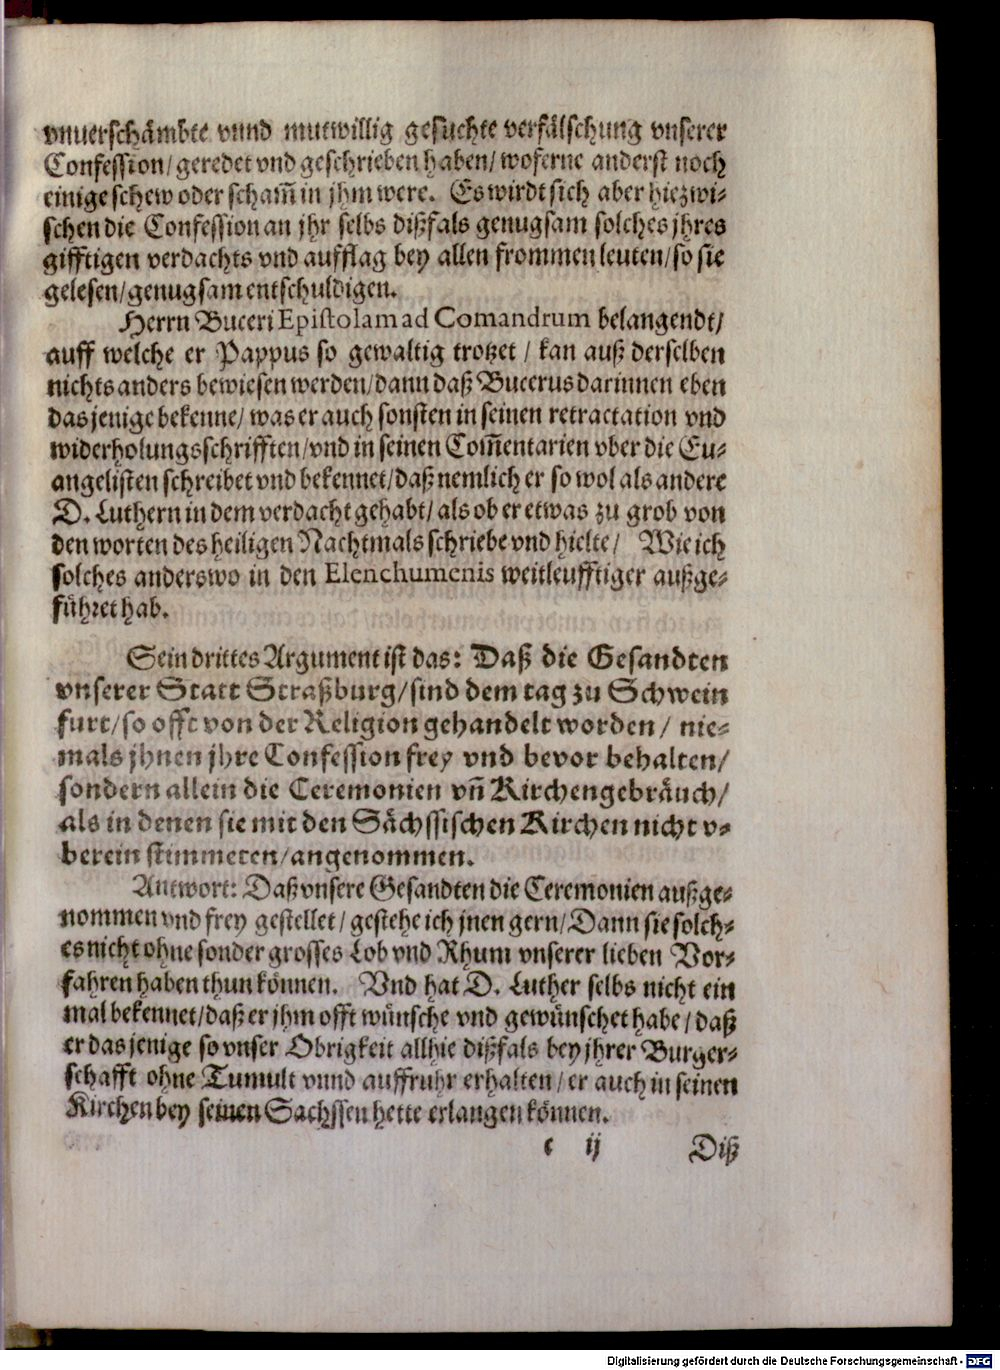 vnuerschämbte vnnd mutwillig gesuchte verfälschung vnserer
Confession/ geredet vnd geschrieben haben/ woferne anderst noch
einige schew oder scham̃ in jhm were. Es wirdt sich aber hiezwi-
schen die Confession an jhr selbs dißfals genugsam solches jhres
gifftigen verdachts vnd aufflag bey allen frommen leuten/ so sie
gelesen/ genugsam entschuldigen.
Herrn Buceri Epistolam ad Comandrum belangendt/
auff welche er Pappus so gewaltig trotzet/ kan auß derselben
nichts anders bewiesen werden/ dann daß Bucerus darinnen eben
das jenige bekenne/ was er auch sonsten in seinen retractation vnd
widerholungsschrifften/ vnd in seinen Com̃entarien vber die Eu-
angelisten schreibet vnd bekennet/ daß nemlich er so wol als andere
D. Luthern in dem verdacht gehabt/ als ob er etwas zu grob von
den worten des heiligen Nachtmals schriebe vnd hielte/ Wie ich
solches anderswo in den Elenchumenis weitleufftiger außge-
führet hab.
Sein drittes Argument ist das: Daß die Gesandten
vnserer Statt Straßburg/ sind dem tag zu Schwein
furt/ so offt von der Religion gehandelt worden/ nie-
mals jhnen jhre Confession frey vnd bevor behalten/
sondern allein die Ceremonien vñ Kirchengebräuch/
als in denen sie mit den Sächssischen Kirchen nicht v-
berein stimmeten/ angenommen.
Antwort: Daß vnsere Gesandten die Ceremonien außge-
nommen vnd frey gestellet/ gestehe ich jnen gern/ Dann sie solch-
es nicht ohne sonder grosses Lob vnd Rhum vnserer lieben Vor-
fahren haben thun können. Vnd hat D. Luther selbs nicht ein
mal bekennet/ daß er jhm offt wünsche vnd gewünschet habe/ daß
er das jenige so vnser Obrigkeit allhie dißfals bey jhrer Burger-
schafft ohne Tumult vnnd auffruhr erhalten/ er auch in seinen
Kirchen bey seinen Sachssen hette erlangen können.
c ij Diß
Digitalisierung gefördert durch die Deutsche Forschungsgemeinschaft - DFG